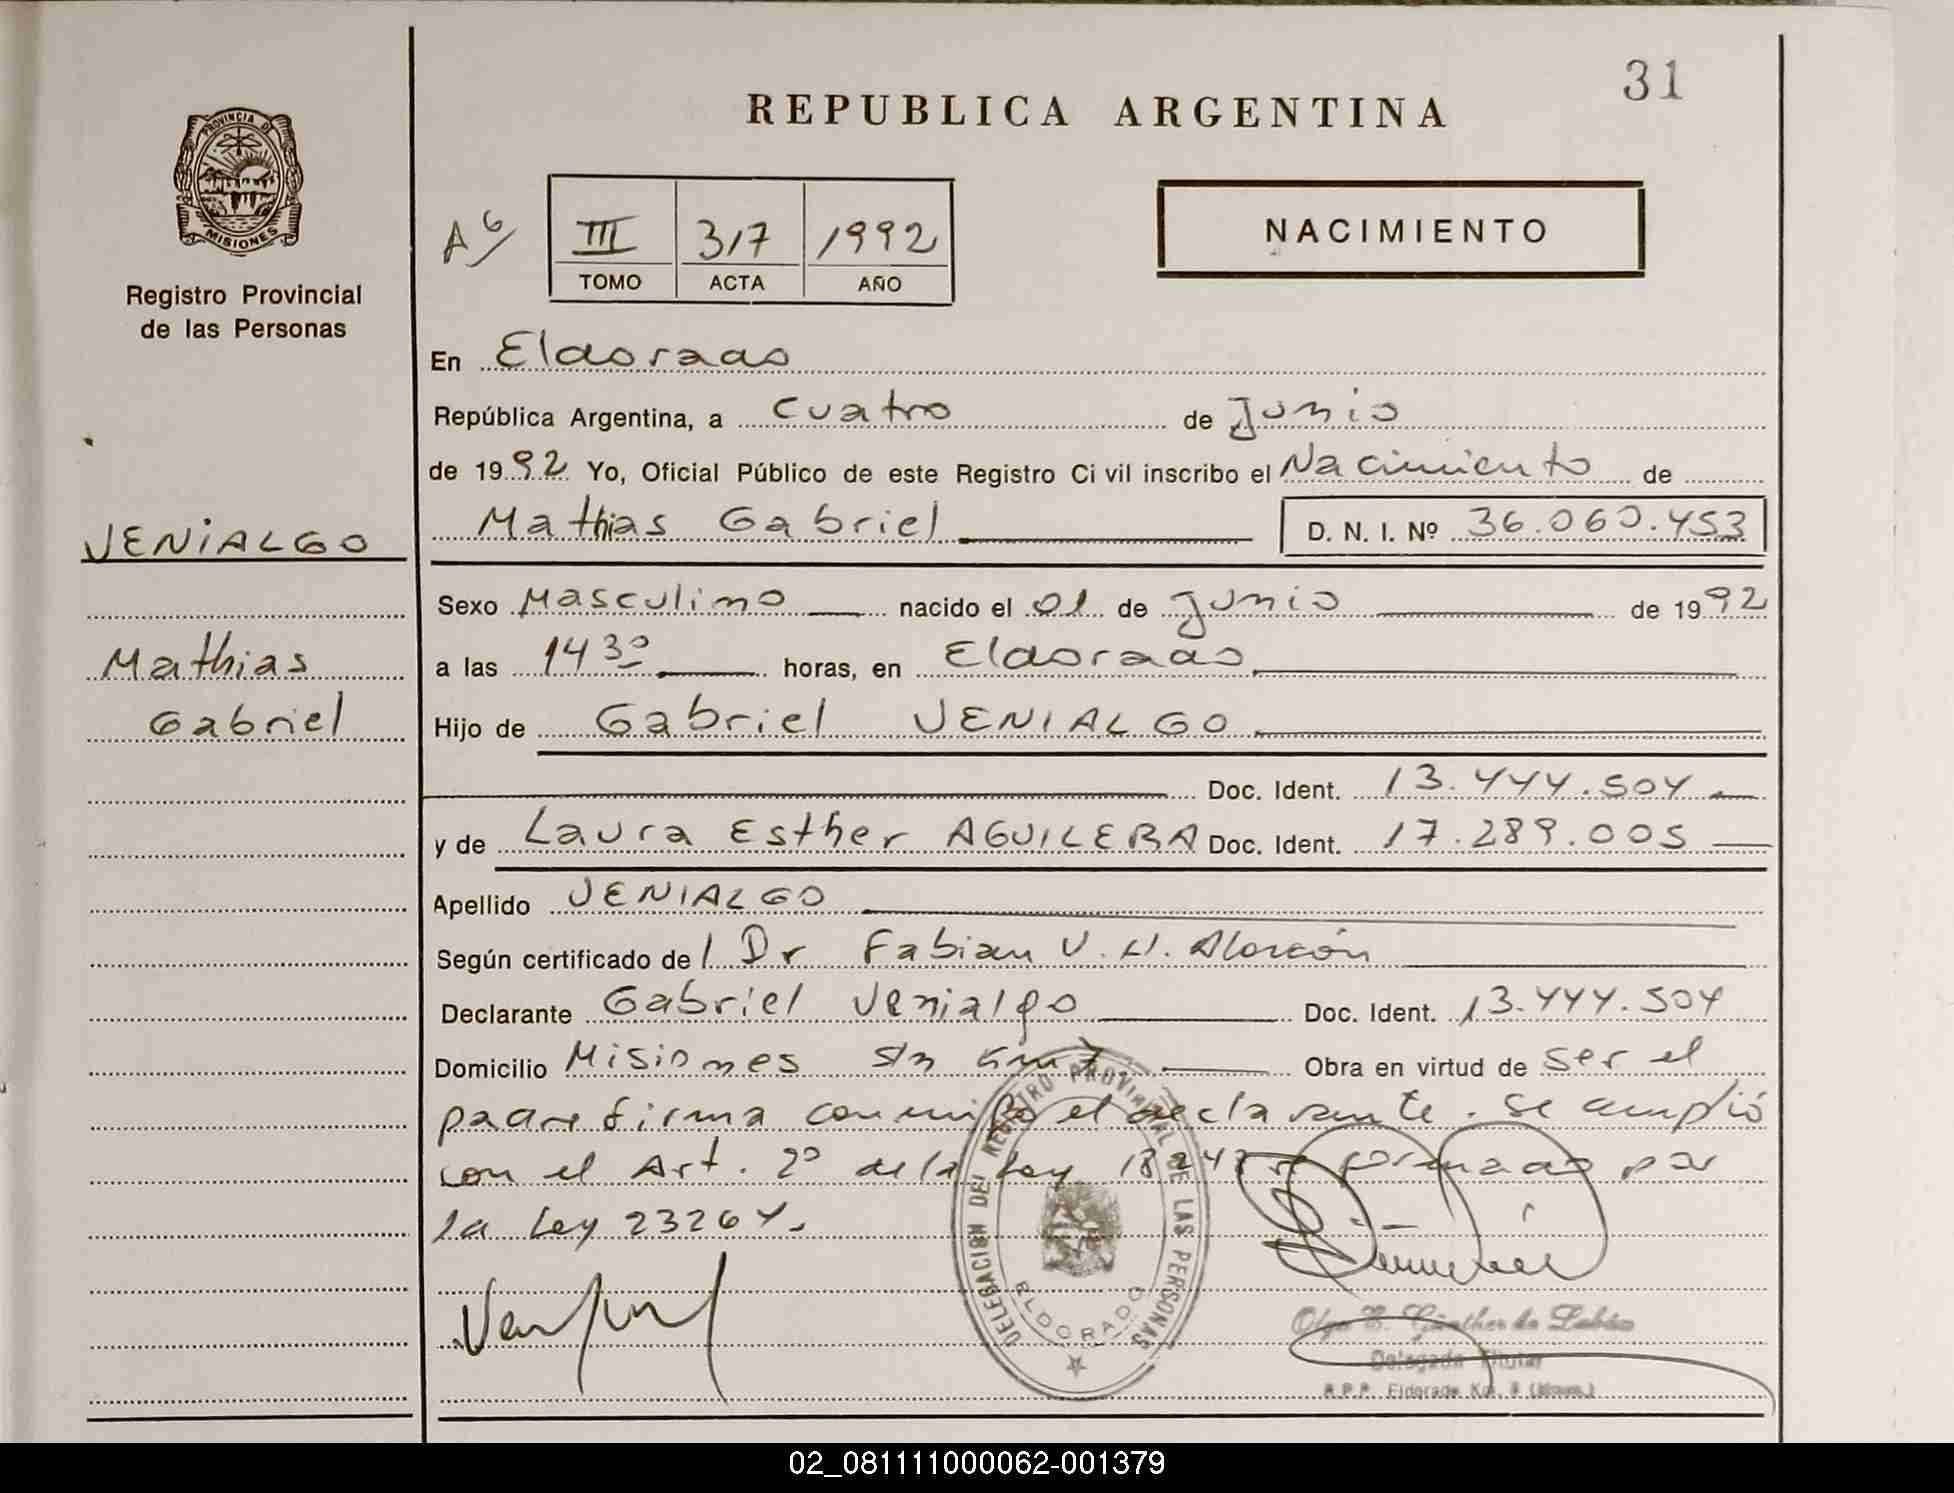 31
REPUBLICA ARGENTINA
PROVINCIA DE
MISIONES
Registro Provincial
de las Personas
A 6/
III 317 1992
TOMO ACTA AÑO
NACIMIENTO
En Eldorado
República Argentina, a cuatro de Junio
de 1992 Yo, Oficial Público de este Registro Ci vil inscribo el Nacimiento de
VENIALGO
Mathias Gabriel D. N. I. Nº 36.060.453
Sexo Masculino nacido el 01 de Junio de 1992
Mathias
a las 14 30 horas, en Eldorado
Gabriel
Hijo de Gabriel VENIALGO
Doc. Ident. 13.444.504
y de Laura Esther AGUILERA Doc. Ident. 17.289.005
Apellido VENIALGO
Según certificado de l Dr Fabian V. H. Alarcón
Declarante Gabriel Venialgo Doc. Ident. 13.444.504
Domicilio Misiones s/n km 7 Obra en virtud de ser el
padre firma conmigo el declarante. Se cumplió
con el Art. 2º de la Ley 18248 reformado por
la Ley 23264.
DELEGACION DEL REGISTRO PROVINCIAL DE LAS PERSONAS
ELDORADO
Olga Günther de
Delegada Titular
R.P.P. Eldorado Km. (Mnes.)
02_081111000062-001379